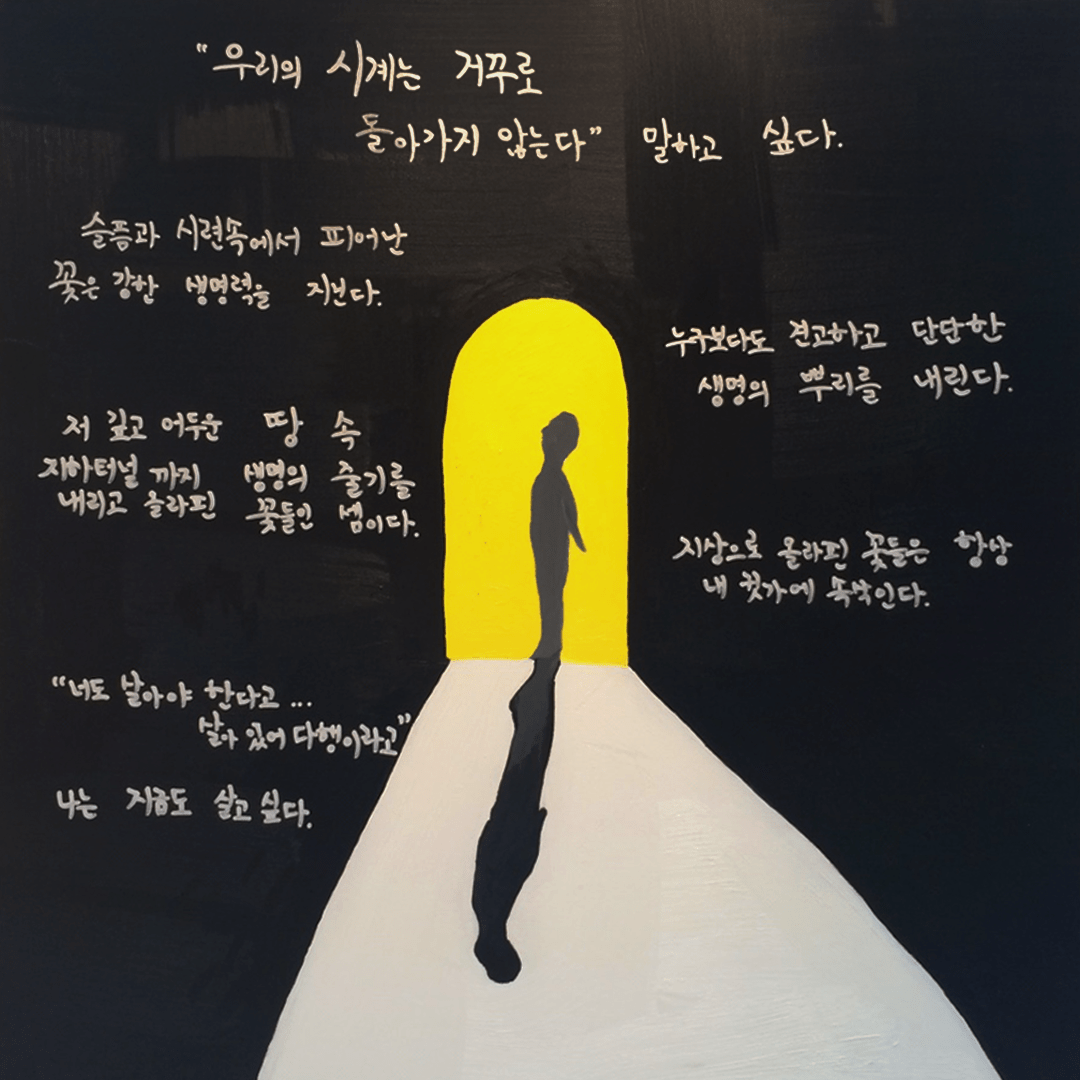 "우리의 시계는 거꾸로
돌아가지 않는다" 말하고 싶다.
슬픔과 시련속에서 피어난
꽃은 강한 생명력을 지닌다.
누구보다도 견고하고 단단한
생명의 뿌리를 내린다.
저 깊고 어두운 땅 속
지하터널 까지 생명의 줄기를
내리고 올라핀 꽃들인 셈이다.
지상으로 올라핀 꽃들은 항상
내 귓가에 속삭인다.
"너도 살아야 한다고...
살아 있어 다행이라고"
나는 지금도 살고 싶다.